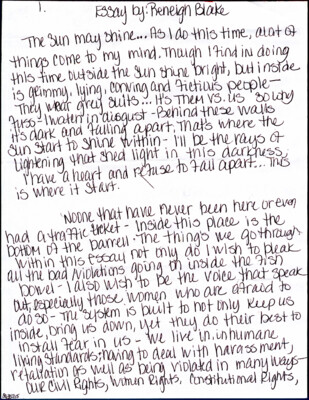 1.
Essay by: Reneigh Blake
The Sun may shine... As I do this time, a lot of
things come to my mind. Though I find in doing
this time outside the sun shine bright, but inside
is glimmy, lying, conving and Ficticus people-
They wear grey suits... It's THEM VS. US so why
fuss- I water in disgust- Behind these walls
it's dark and falling apart. That's where the
Sun start to shine within- I'll be the rays of
lightening that shed light in this darkness.
I have a heart and refuse to fall apart... This
is where it start.
No one that have never been here or even
had a traffic ticket- Inside this place is the
bottom of the barrell. The things we go through
within this essay not only do I wish to speak
all the bad violations going on inside the fish
bowel- I also wish to be the voice that speak
out, especially those, women who are afraid to
do so- The system is built to not only keep us
inside, bring us down, yet they do their best to
install fear in us- We live in inhumane
living standards; having to deal with harassment,
retaliation as well as being violated in many ways-
our civil Rights, Women Rights, Constitutional Rights,